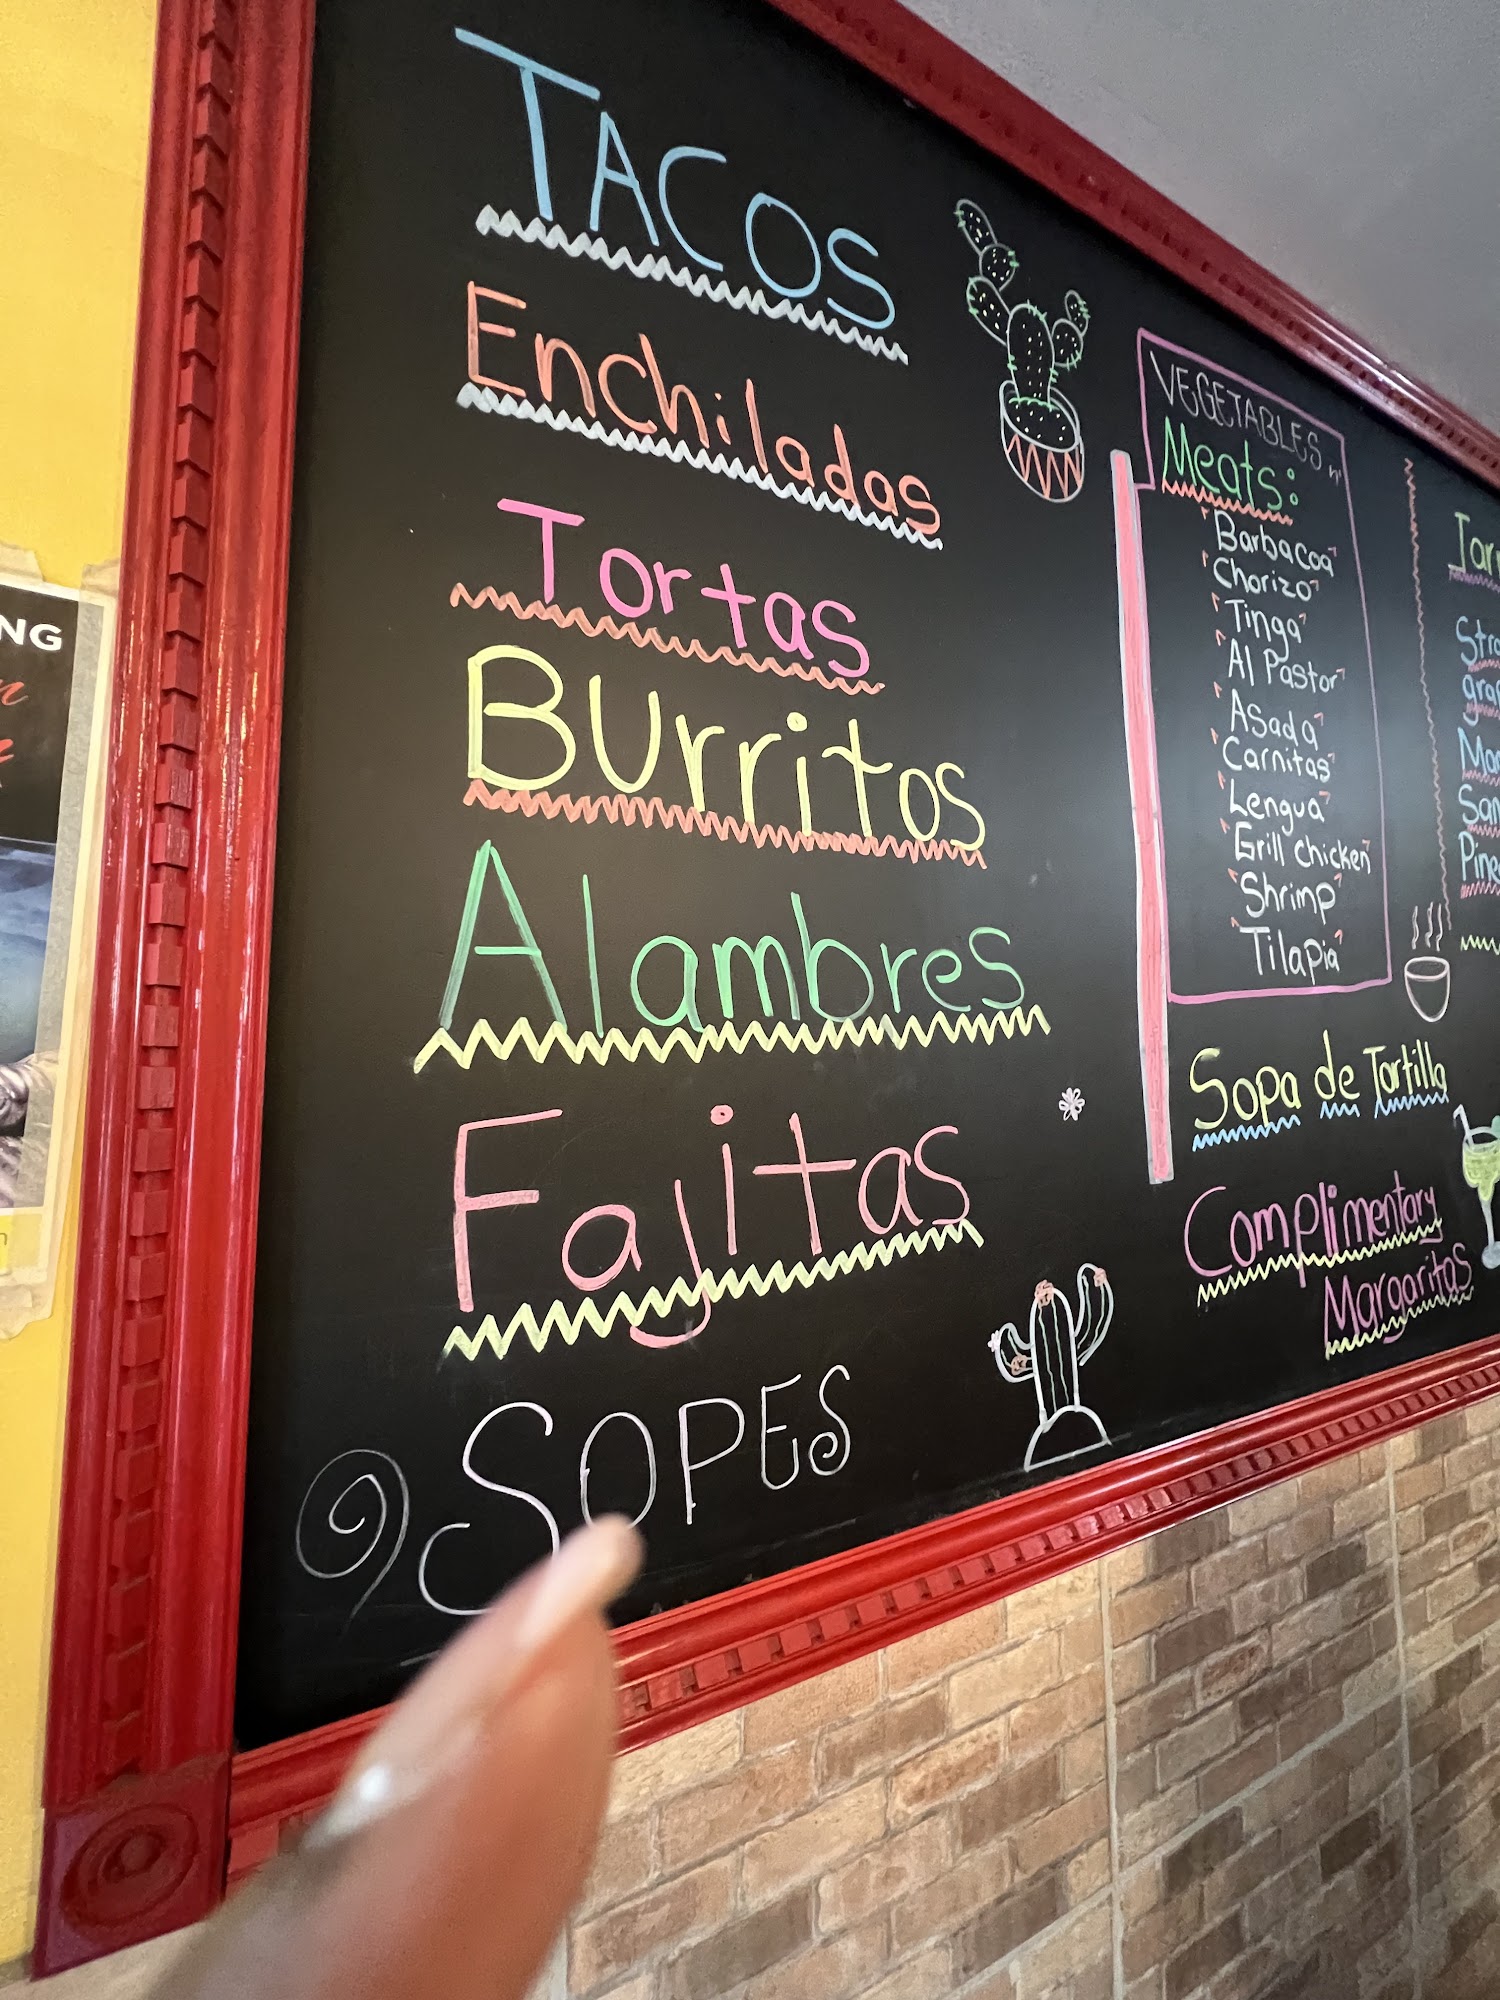 TACOS
Enchiladas
Tortas
BUrritos
Alambres
Fajitas
SOPES
VEGETABLES n'
Meats:
Barbacoa
Chorizo
Tinga
Al Pastor
Asada
Carnitas
Lengua
Grill chicken
Shrimp
Tilapia
Sopa de Tortilla
Complimentary
Margaritas
NG